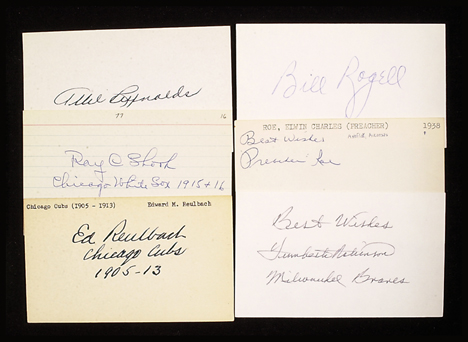 Allie Reynolds
77 16
Ray C Shook
Chicago White Sox 1915 + 16
Chicago Cubs (1905 - 1913) Edward M. Reulbach
Ed Reulbach
Chicago Cubs
1905-13
Bill Rogell
ROE, ELWIN CHARLES (PREACHER) 1938
Best Wishes
Preacher Roe
Best Wishes
Humberto Robinson
Milwaukee Braves